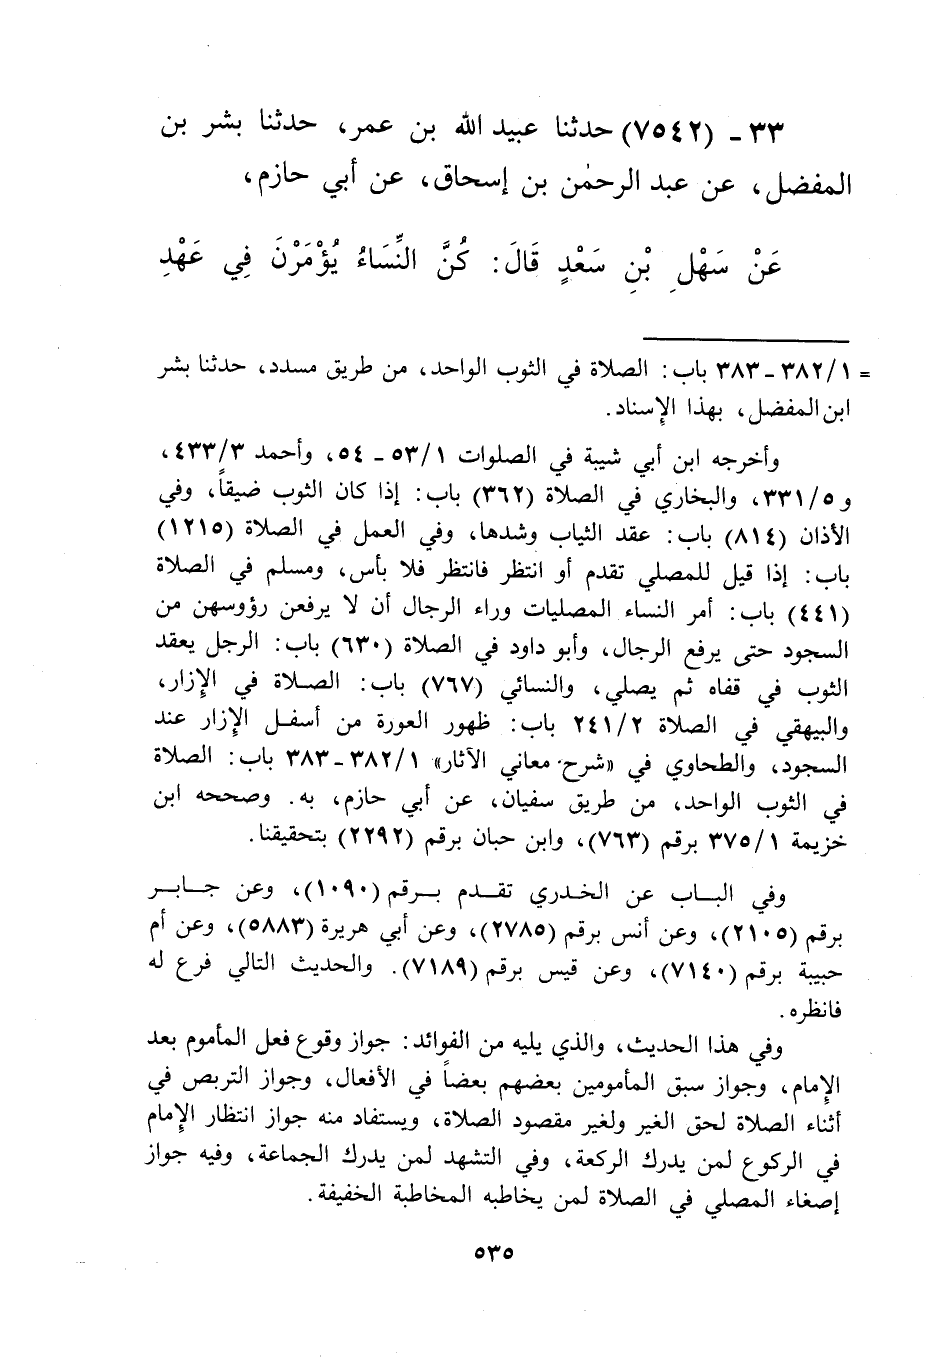 ٣٣ - (٧٥٤٢) حدثنا عبيد الله بن عمر، حدثنا بشر بن
المفضل، عن عبد الرحمٰن بن إسحاق، عن أبي حازم،
عَنْ سَهْلِ بْنِ سَعْدٍ قَالَ: كُنَّ النِّسَاءُ يُؤْمَرْنَ فِي عَهْدِ
= ٣٨٢/١ - ٣٨٣ باب: الصلاة في الثوب الواحد، من طريق مسدد، حدثنا بشر
ابن المفضل، بهذا الإسناد.
وأخرجه ابن أبي شيبة في الصلوات ٥٣/١ - ٥٤، وأحمد ٤٣٣/٣،
و٣٣١/٥، والبخاري في الصلاة (٣٦٢) باب: إذا كان الثوب ضيقاً، وفي
الأذان (٨١٤) باب: عقد الثياب وشدها، وفي العمل في الصلاة (١٢١٥)
باب: إذا قيل للمصلي تقدم أو انتظر فانتظر فلا بأس، ومسلم في الصلاة
(٤٤١) باب: أمر النساء المصليات وراء الرجال أن لا يرفعن رؤوسهن من
السجود حتى يرفع الرجال، وأبو داود في الصلاة (٦٣٠) باب: الرجل يعقد
الثوب في قفاه ثم يصلي، والنسائي (٧٦٧) باب: الصلاة في الإزار،
والبيهقي في الصلاة ٢٤١/٢ باب: ظهور العورة من أسفل الإزار عند
السجود، والطحاوي في «شرح معاني الآثار» ٣٨٢/١ - ٣٨٣ باب: الصلاة
في الثوب الواحد، من طريق سفيان، عن أبي حازم، به. وصححه ابن
خزيمة ٣٧٥/١ برقم (٧٦٣)، وابن حبان برقم (٢٢٩٢) بتحقيقنا.
وفي الباب عن الخدري تقدم برقم (١٠٩٠)، وعن جابر
برقم (٢١٠٥)، وعن أنس برقم (٢٧٨٥)، وعن أبي هريرة (٥٨٨٣)، وعن أم
حبيبة برقم (٧١٤٠)، وعن قيس برقم (٧١٨٩). والحديث التالي فرع له
فانظره.
وفي هذا الحديث، والذي يليه من الفوائد: جواز وقوع فعل المأموم بعد
الإمام، وجواز سبق المأمومين بعضهم بعضاً في الأفعال، وجواز التربص في
أثناء الصلاة لحق الغير ولغير مقصود الصلاة، ويستفاد منه جواز انتظار الإمام
في الركوع لمن يدرك الركعة، وفي التشهد لمن يدرك الجماعة، وفيه جواز
إصغاء المصلي في الصلاة لمن يخاطبه المخاطبة الخفيفة.
٥٣٥